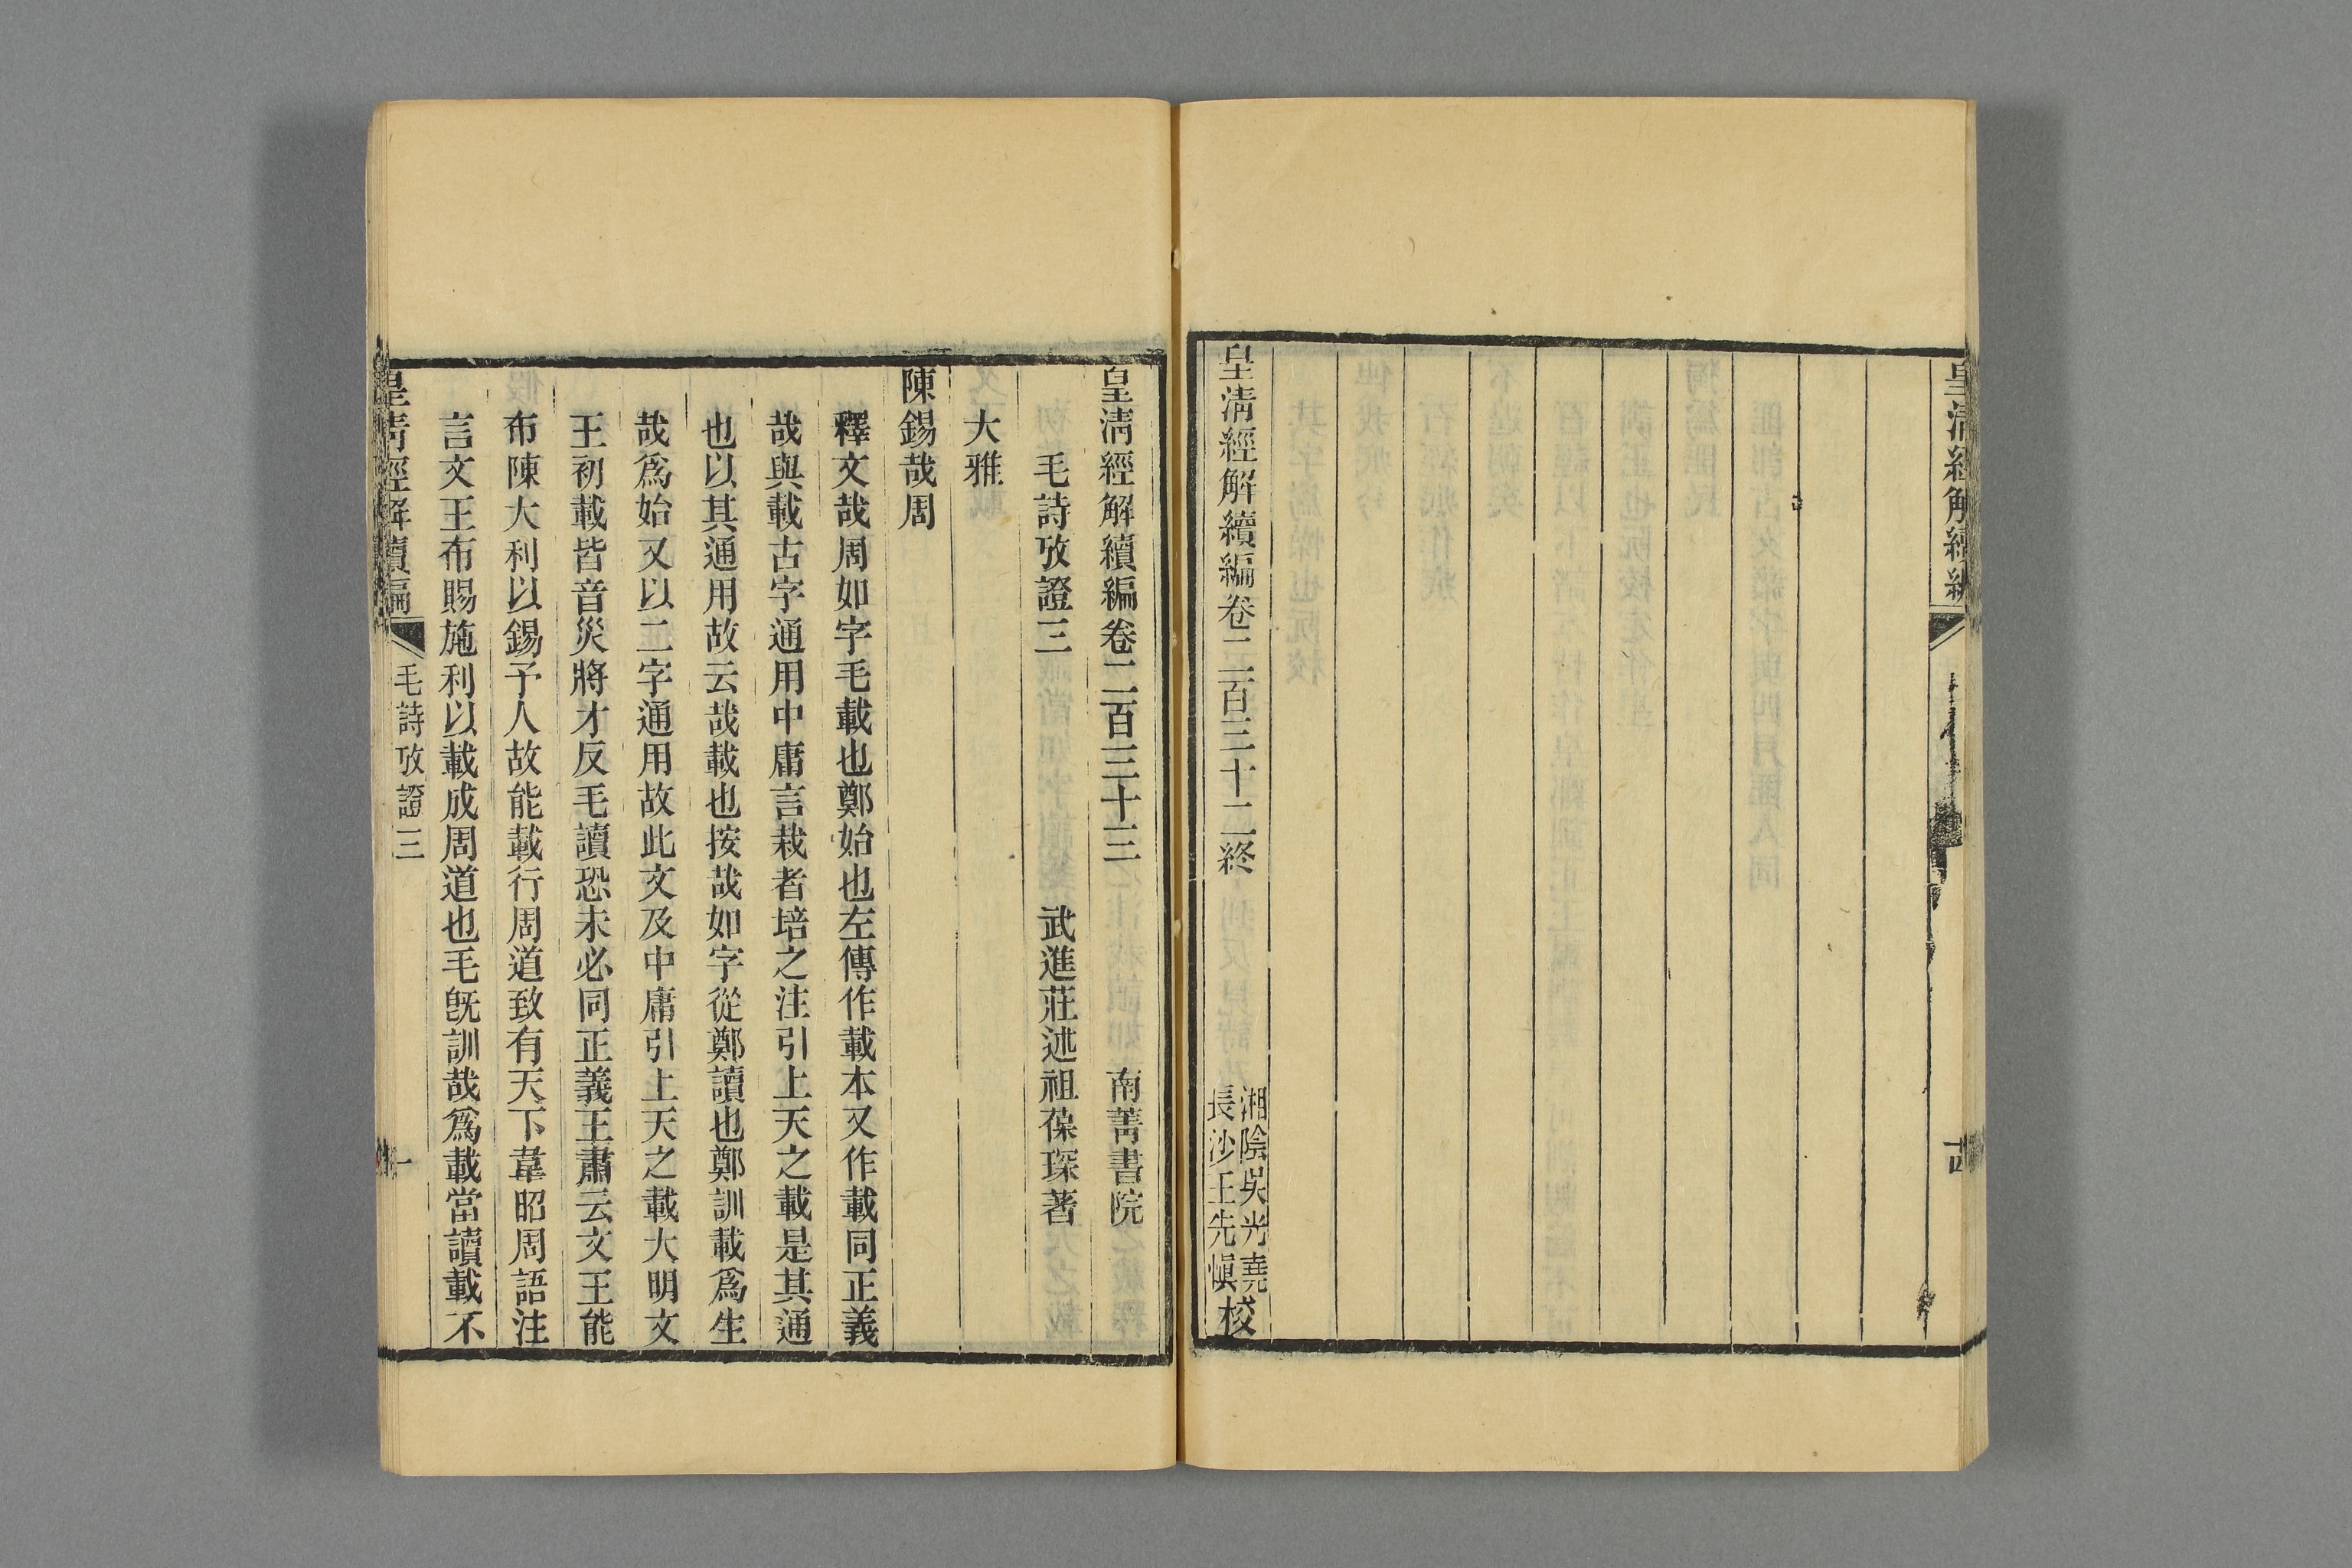 皇清經解續編
皇清經解續編卷二百三十二終
湘陰吳光堯
長沙王先愼校
皇清經解續編卷二百三十三
南菁書院
毛詩攷證三
武進莊述祖葆琛著
大雅
陳錫哉周
釋文哉周如字毛載也鄭始也左傳作載本又作載同正義
哉與載古字通用中庸言栽者培之注引上天之載是其通
也以其通用故云哉載也按哉如字從鄭讀也鄭訓載爲生
哉爲始又以二字通用故此文及中庸引上天之載大明文
王初載皆音災將才反毛讀恐未必同正義王肅云文王能
布陳大利以錫予人故能載行周道致有天下韋昭周語注
言文王布賜施利以載成周道也毛旣訓哉爲載當讀載不
皇清經解續編
毛詩攷證三
一